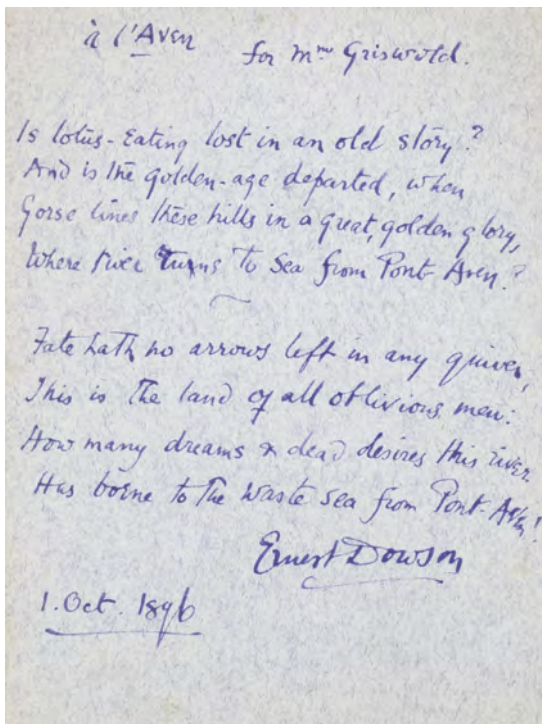 à l'Aven
for Mme Griswold.
Is lotus-eating lost in an old story?
And is the golden-age departed, when
Gorse lines these hills in a great, golden glory,
Where river turns to Sea from Pont-Aven?
Fate hath no arrows left in any quiver,
This is the land of all oblivious men:
How many dreams & dead desires this river
Has borne to the waste sea from Pont-Aven!
Ernest Dowson
1. Oct. 1896